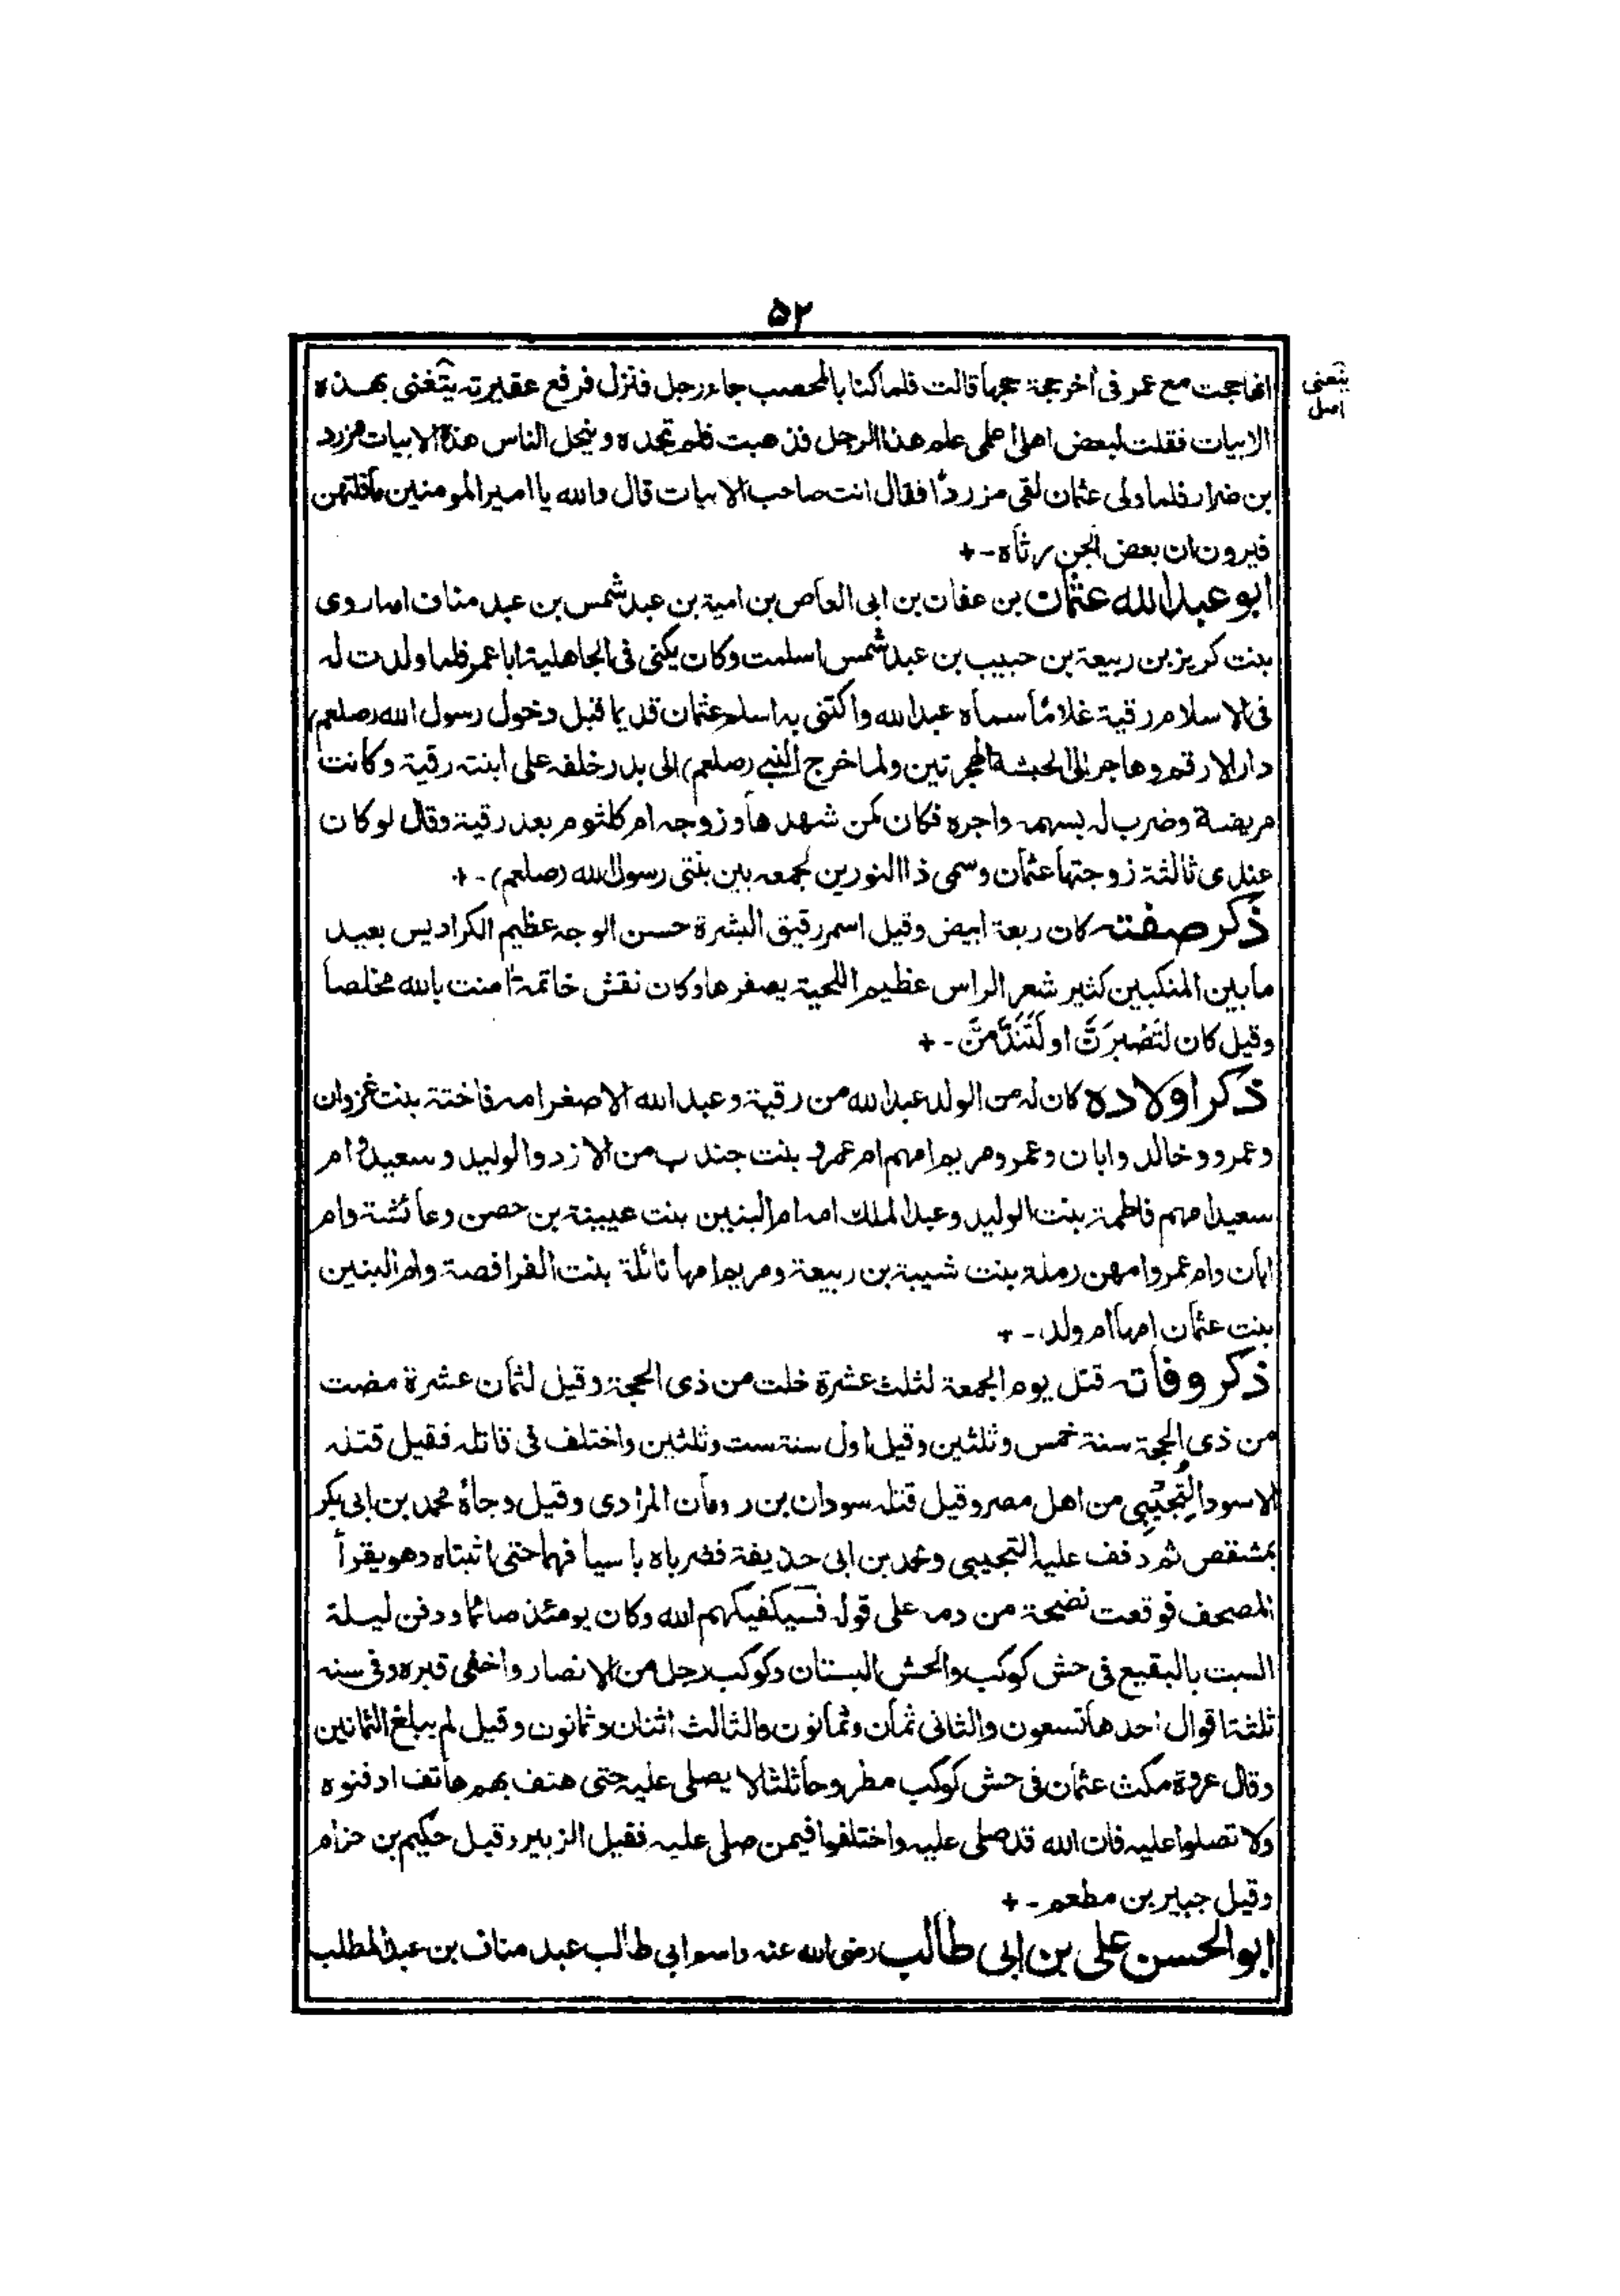 ۵۲
يتغنى
اصل
انها حجت مع عمر فى أخر حجة حجها قالت فلما كنا بالمحصب جاء رجل فنزل فرفع عقيرته يتغنى بهذه
الابيات فقلت لبعض اهلى اعلى علم هذا الرجل فذهبت فلم تجده وينحل الناس هذه الابيات مزرد
بن ضرار فلما ولى عثمان لقى مزردًا فقال انت صاحب الابيات قال والله يا امير المومنين ما قلتهن
فيرون ان بعض الجن رثاه -+
ابو عبد الله عثمان بن عفان بن ابى العاص بن امية بن عبد شمس بن عبد مناف امه اروى
بنت كريز بن ربيعة بن حبيب بن عبد شمس اسلمت وكان يكنى فى الجاهلية ابا عمر فلما ولدت له
فى الاسلام رقية غلامًا سماه عبد الله واكتنى به اسلم عثمان قديما قبل دخول رسول الله (صلعم)
دار الارقم وهاجر الى الحبشة الهجرتين ولما خرج النبى (صلعم) الى بدر خلفه على ابنته رقية وكانت
مريضة وضرب له بسهمه واجره فكان كمن شهدها وزوجه ام كلثوم بعد رقية وقال لو كان
عندى ثالثة زوجتها عثمان وسمى ذا النورين لجمعه بين بنتى رسول الله (صلعم) -+
ذكر صفته كان ربعة ابيض وقيل اسمر رقيق البشرة حسن الوجه عظيم الكراديس بعيد
ما بين المنكبين كثير شعر الراس عظيم اللحية يصفرها وكان نقش خاتمه أمنت بالله مخلصا
وقيل كان لَتَصْبِرَنَّ او لَتَنَدَّمَنَّ -+
ذكر اولاده كان له من الولد عبد الله من رقية وعبد الله الاصغر امه فاختة بنت غزوان
وعمرو وخالد وابان وعمر ومريم امهم ام عمرو بنت جندب من الازد والوليد وسعيد و ام
سعيد امهم فاطمة بنت الوليد وعبد الملك امه ام البنين بنت عيينة بن حصن وعائشة وام
ابان وام عمرو امهن رملة بنت شيبة بن ربيعة ومريم امها نائلة بنت الفرافصة وام البنين
بنت عثمان امها ام ولد -+
ذكر وفاته قتل يوم الجمعة لثلث عشرة خلت من ذى الحجة وقيل لثمان عشرة مضت
من ذى الحجة سنة خمس وثلثين وقيل اول سنة ست وثلثين واختلف فى قاتله فقيل قتله
الاسود التُّجِيْبِي من اهل مصر وقيل قتله سودان بن رومان المرادى وقيل وجأه محمد بن ابى بكر
بمشقص ثم دفف عليه التجيبى ومحمد بن ابى حذيفة فضرباه باسيافهما حتى اثبتاه وهو يقرأ
المصحف فوقعت نضحة من دمه على قوله فسيكفيكهم الله وكان يومئذ صائما ودفن ليلة
السبت بالبقيع فى حش كوكب والحش البستان وكوكب رجل من الانصار واخفى قبره وفى سنه
ثلثة اقوال احدها تسعون والثانى ثمان وثمانون والثالث اثنان وثمانون وقيل لم يبلغ الثمانين
وقال عروة مكث عثمان فى حش كوكب مطروحا ثلثا لا يصلى عليه حتى هتف بهم هاتف ادفنوه
ولا تصلوا عليه فان الله قد صلى عليه واختلفوا فيمن صلى عليه فقيل الزبير وقيل حكيم بن حزام
وقيل جبير بن مطعم -+
ابو الحسن على بن ابى طالب رضى الله عنه واسم ابي طالب عبد مناف بن عبد المطلب